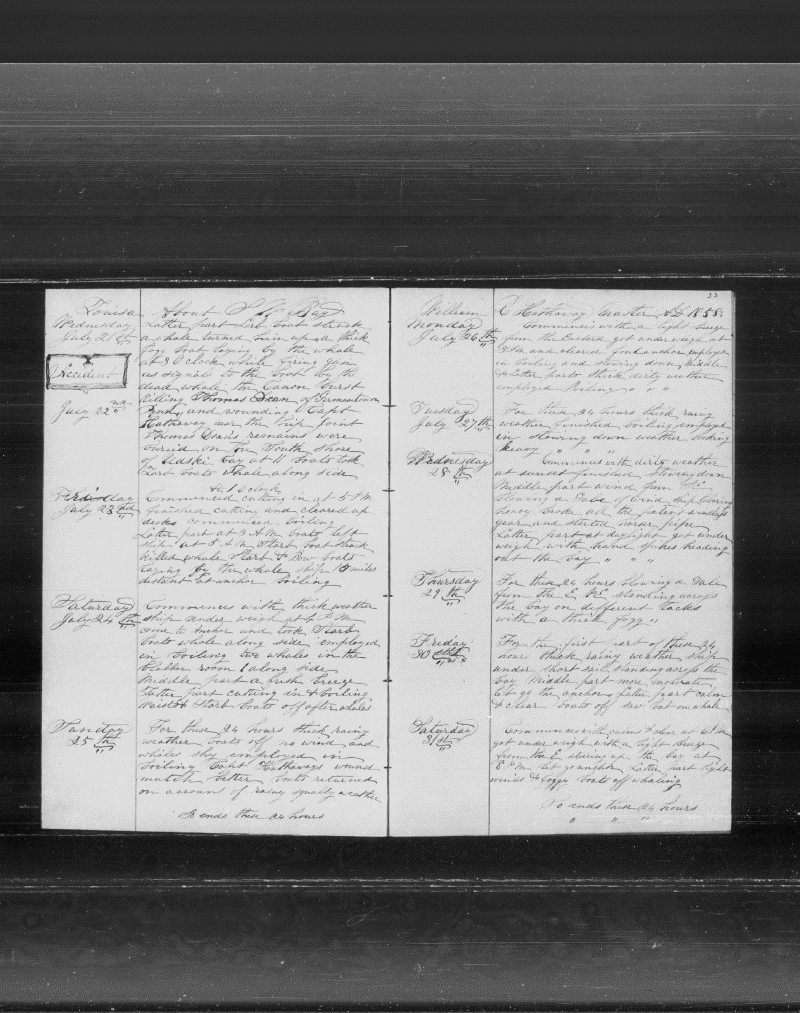 Louisa About S W Bay
Wednesday Latter part Larb boat struck
July 21st a whale turned him up a thick
fog boat laying by the whale
at 9 O clock while firing gun
Accident as signals to the boat by the
dead whale the canon burst
killing Thomas Dean of Germantown
July 22nd and wounding Capt
Hathaway near the hip joint
Thomas Deans remains were
buried on the South shore
of bay at 11 boats took
Larb boats whale along side
at 1 o clock
Friday Commenced cutting in at 5 PM
July 23rd finished cutting and cleared up
decks commenced boiling
Latter part at 3 A M boats left
ship at 5 A M Starb boat struck
killed whale Starb & Bow boats
laying by the whale ship 15 miles
distant at anchor boiling
Saturday Commences with thick weather
July 24th ship under weigh at 4 P M
come to anchor and took Starb
boats whale along side employed
in boiling two whales in the
blubber room 1 along side
Middle part a fresh breeze
Latter part cutting in & boiling
Waist & Starb boats off after whales
Sunday For these 24 hours thick rainy
25th weather boats off no wind and
whales shy employed in
boiling Capt Hathaways wound
mutch better boats returned
on account of rainy squally weather
So ends these 24 hours
33
William C Hathaway Master AD 1858
Monday Commences with a light breeze
July 26th from the Eastard got under weigh at
P M and cleared anchor employed
in boiling and stowing down Middle
& Latter parts thick dirty weather
employed Boiling " " "
Tuesday For these 24 hours thick rainy
July 27th weather finished boiling employed
in stowing down weather looking
heavy " " "
Wednesday Commences with dirty weather
28th at sunset finished stowing down
Middle part wind from
blowing a Gale of wind ship
heavy broke all the patent windlass
gear and started pipe
Latter part at daylight got under
weigh with hand spikes heading
out the bay " " "
Thursday For these 24 hours blowing a Gale
29th from the E standing across
the bay on different tacks
with a thick fogg "
Friday For the first part of these 24
30th hours thick rainy weather ship
under short sail standing across the
bay Middle part more moderate
let go the anchor Latter part calm
& clear boats off saw but one whale
Saturday Commences with calm & clear at PM
31st got under weigh with a light breeze
from the E up the bay at
8 P M let go anchor Latter part light
winds & foggy boats off whaling
So ends these 24 hours
" " "